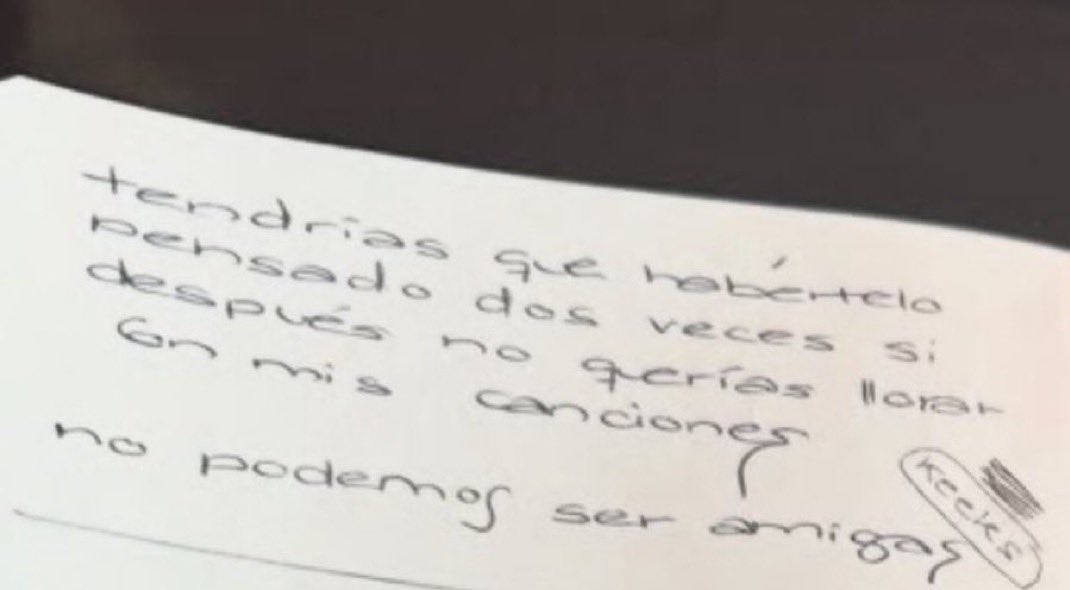 tendrías que habértelo
pensado dos veces si
después no querías llorar
con mis canciones
no podemos ser amigas
keeks